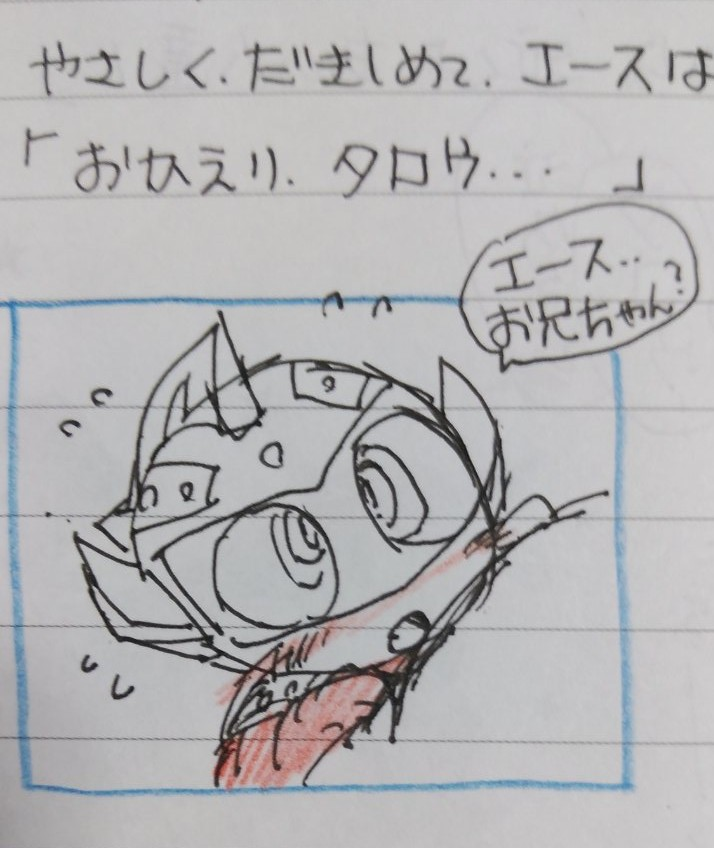 やさしく、だきしめて、エースは
「おかえり、タロウ...」
エース..
お兄ちゃん?